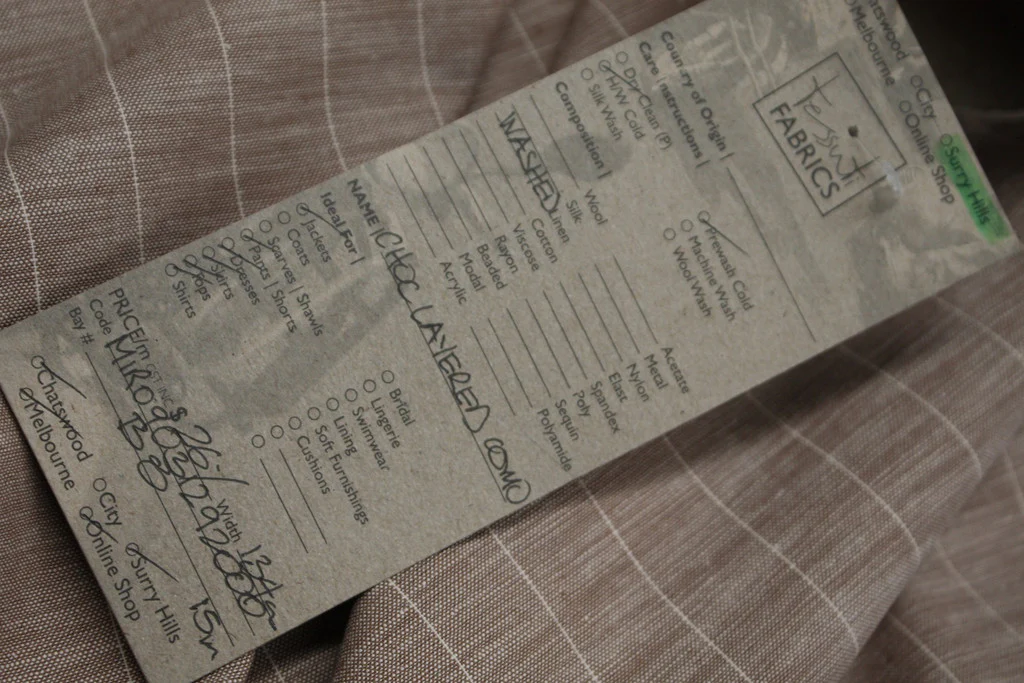 Chatswood City Surry Hills
Melbourne Online Shop
tessuti
FABRICS
Country of Origin |
Care Instructions |
Dry Clean (P) Prewash Cold
H/W Cold Machine Wash
Silk Wash Wool Wash
Composition |
Wool Acetate
Silk Metal
WASHED Linen Nylon
Cotton Elast
Viscose Spandex
Rayon Poly
Beaded Sequin
Modal Polyamide
Acrylic
NAME | CHOC LAYERED COMO
Ideal For |
Jackets Bridal
Coats Lingerie
Scarves | Shawls Swimwear
Pants | Shorts Lining
Dresses Soft Furnishings
Skirts Cushions
Tops
Shirts
PRICE/m $ Width
Code
Bay # 15m
Chatswood City Surry Hills
Melbourne Online Shop